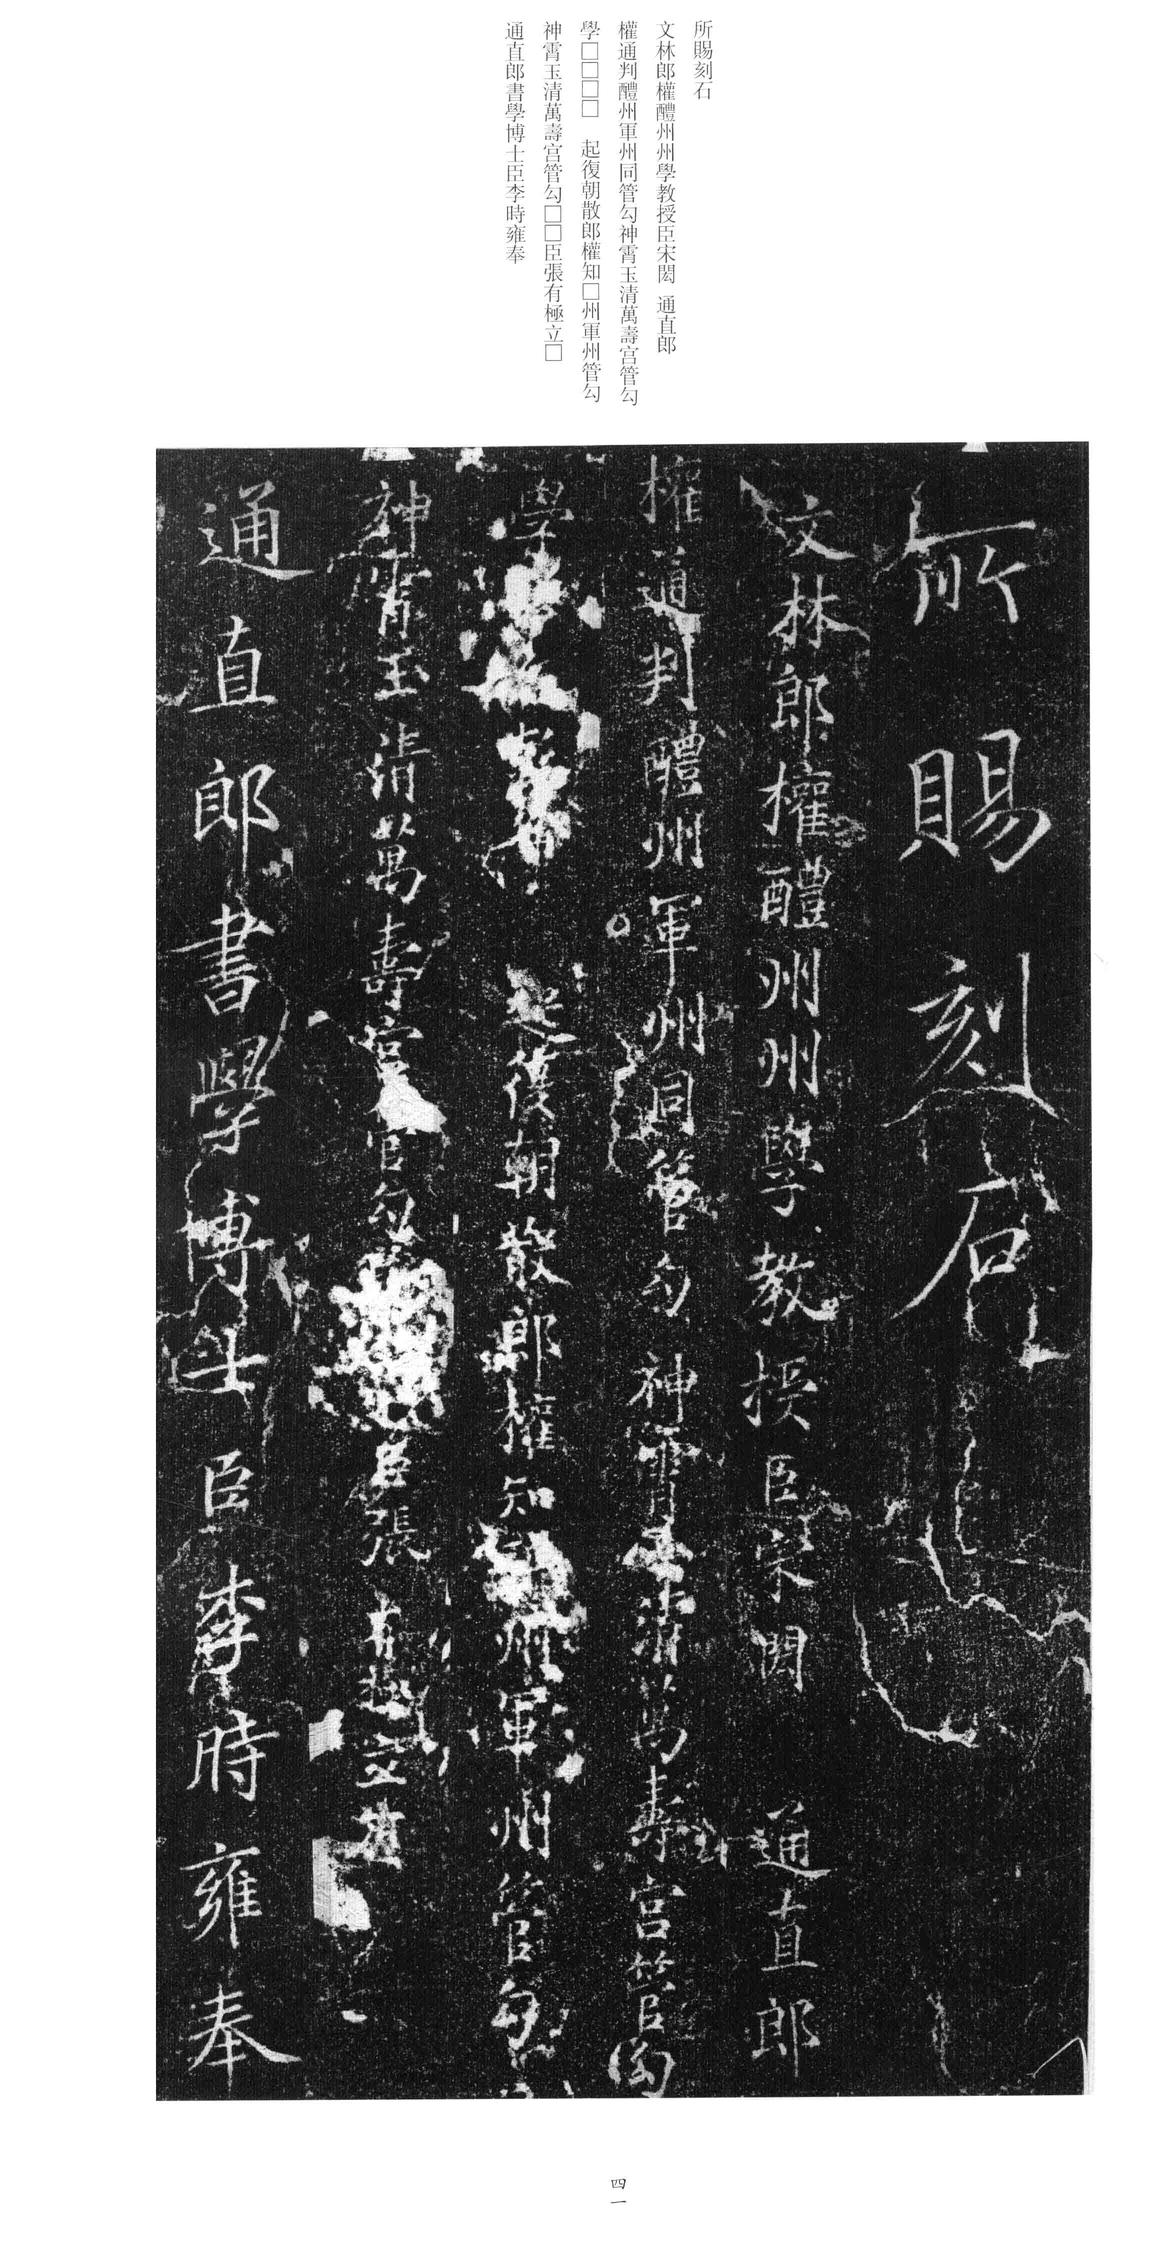 所賜刻石
文林郎權醴州州學教授臣宋閎 通直郎
權通判醴州軍州同管勾神霄玉清萬壽宫管勾
學□□□□ 起復朝散郎權知□州軍州管勾
神霄玉清萬壽宫管勾□□臣張有極立□
通直郎書學博士臣李時雍奉
所賜刻石
文林郎權醴州州學教授臣宋閎 通直郎
權通判醴州軍州同管勾神霄玉清萬壽宫管勾
學 起復朝散郎權知 州軍州管勾
神霄玉清萬壽宫管勾 臣張有極立
通直郎書學博士臣李時雍奉
四一